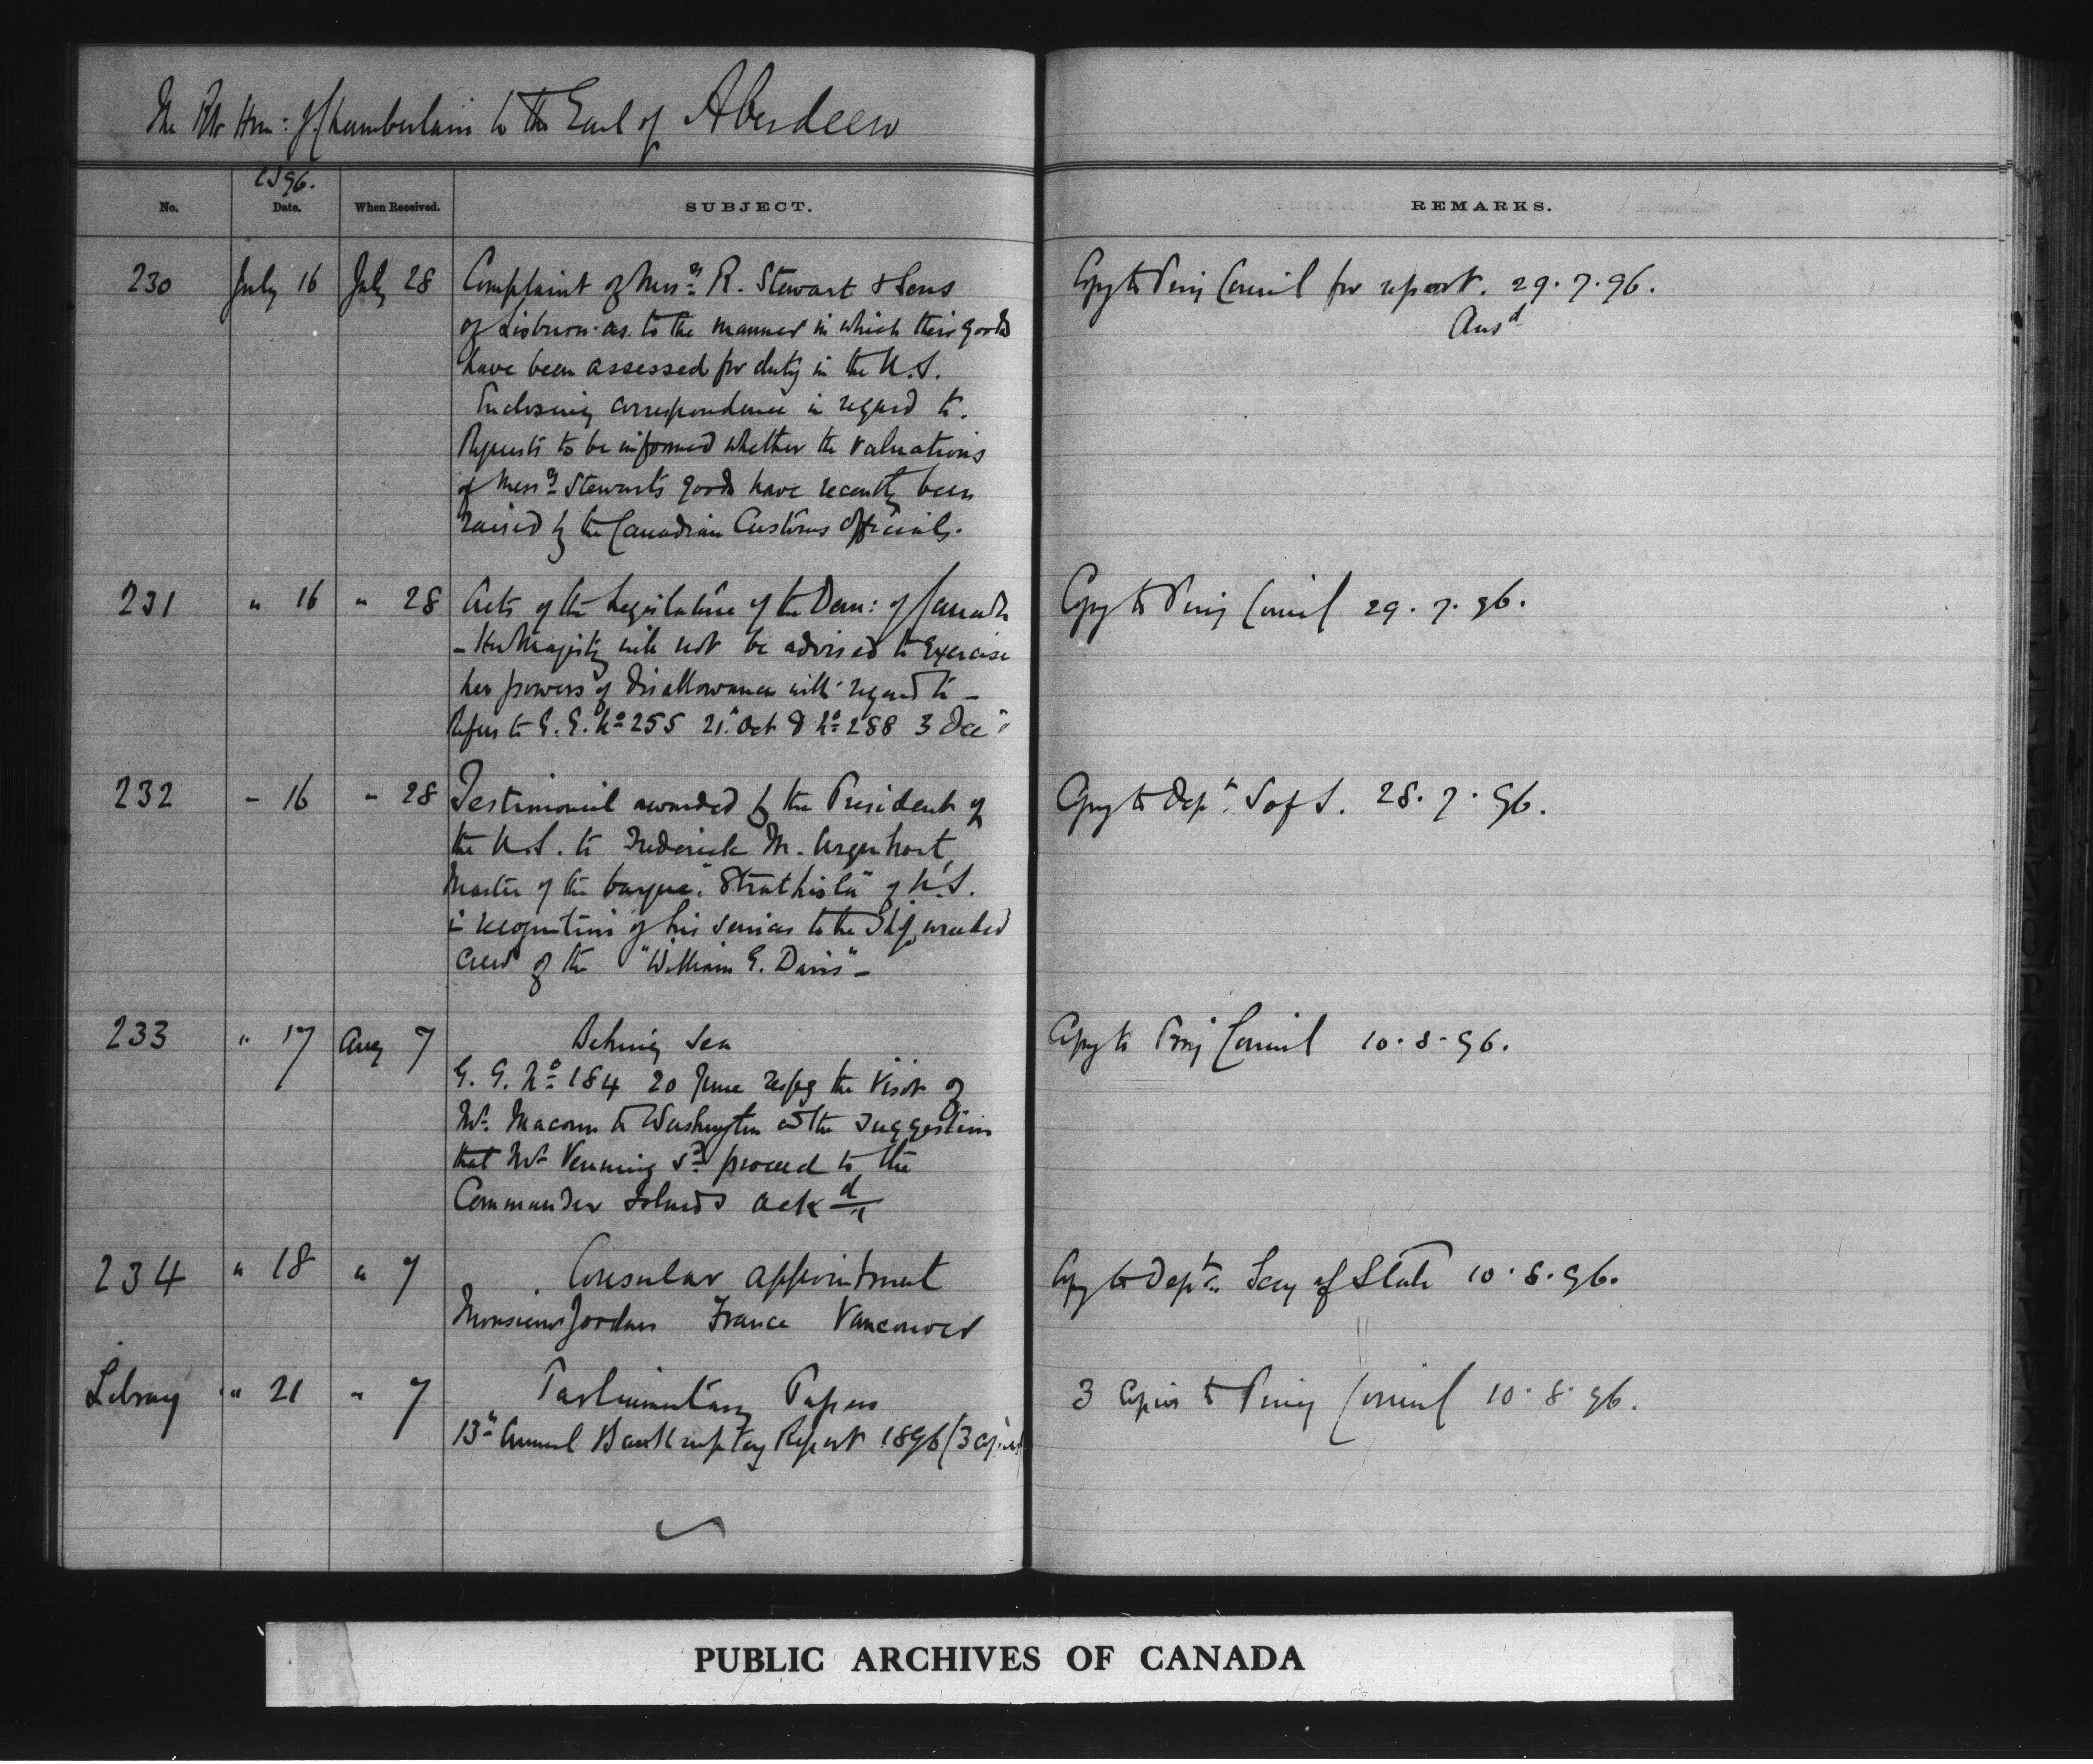 The Rt Hon: J. Chamberlain to the Earl of Aberdeen
No.
1896.
Date.
When Received.
SUBJECT.
REMARKS.
230 July 16 July 28 Complaint of Messrs R. Stewart & Sons
of Lisburn as to the manner in which their goods
have been assessed for duty in the U.S.
Enclosing correspondence in regard to.
Requests to be informed whether the valuations
of Messrs Stewarts goods have recently been
raised by the Canadian Customs Officials.
Copy to Privy Council for report. 29.7.96.
Ansd
231 " 16 " 28 Acts of the Legislature of the Dom: of Canada
- Her Majesty will not be advised to exercise
her powers of disallowance with regard to -
Refers to G.G. No 255 21 Oct & No 288 3 Dec
Copy to Privy Council 29.7.96.
232 - 16 " 28 Testimonial awarded by the President of
the U.S. to Frederick M. Urquhart,
Master of the barque "Strathisla" of N.S.
in recognition of his services to the Shipwrecked
crew of the "William G. Davis" -
Copy to Dept. S of S. 28.7.96.
233 " 17 Aug 7 Behring Sea
G.G. No 184 20 June respg the visit of
Mr. Macoun to Washington & the suggestion
that Mr Venning sd proceed to the
Commander Islands ackd
Copy to Privy Council 10.8.96.
234 " 18 " 7 Consular appointment
Monsieur Jordan France Vancouver
Copy to Dept. Secy of State 10.8.96.
Library " 21 " 7 Parliamentary Papers
13th Annual Bankruptcy Report 1896 (3 copies)
3 Copies to Privy Council 10.8.96.
PUBLIC ARCHIVES OF CANADA